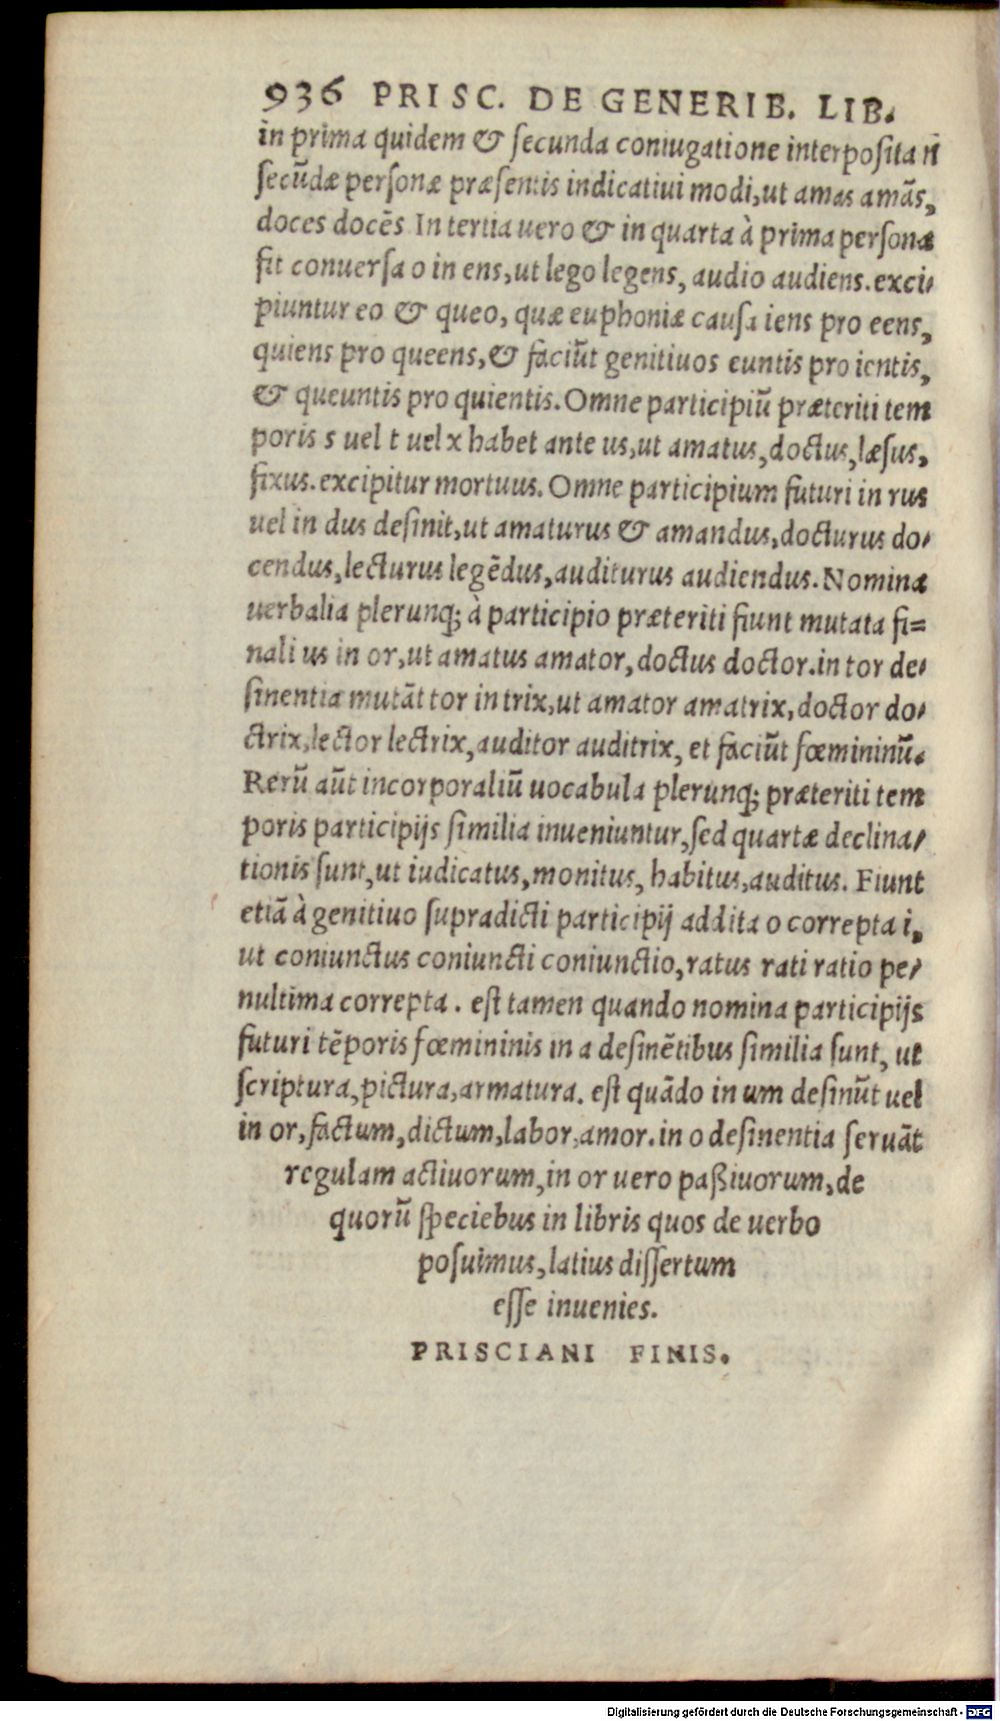 936 PRISC. DE GENERIB. LIB.
in prima quidem & ſecunda coniugatione interpoſita n
ſecūdæ perſonæ præſentis indicatiui modi, ut amas amās,
doces docēs In tertia uero & in quarta à prima perſona
fit conuerſa o in ens, ut lego legens, audio audiens. exci-
piuntur eo & queo, quæ euphoniæ cauſa iens pro eens,
quiens pro queens, & faciūt genitiuos euntis pro ientis,
& queuntis pro quientis. Omne participiū præteriti tem
poris s uel t uel x habet ante us, ut amatus, doctus, læſus,
fixus. excipitur mortuus. Omne participium futuri in rus
uel in dus deſinit, ut amaturus & amandus, docturus do-
cendus, lecturus legēdus, auditurus audiendus. Nomina
uerbalia plerunq; à participio præteriti fiunt mutata fi=
nali us in or, ut amatus amator, doctus doctor. in tor de-
ſinentia mutāt tor in trix, ut amator amatrix, doctor do-
ctrix, lector lectrix, auditor auditrix, et faciūt fœmininū.
Rerū aūt incorporaliū uocabula plerunq; præteriti tem
poris participijs ſimilia inueniuntur, ſed quartæ declina-
tionis ſunt, ut iudicatus, monitus, habitus, auditus. Fiunt
etiā à genitiuo ſupradicti participij addita o correpta i,
ut coniunctus coniuncti coniunctio, ratus rati ratio pe-
nultima correpta. eſt tamen quando nomina participijs
futuri tēporis fœmininis in a deſinētibus ſimilia ſunt, ut
ſcriptura, pictura, armatura. eſt quādo in um deſinūt uel
in or, factum, dictum, labor, amor. in o deſinentia ſeruāt
regulam actiuorum, in or uero paßiuorum, de
quorū ſpeciebus in libris quos de uerbo
poſuimus, latius diſſertum
eſſe inuenies.
PRISCIANI FINIS.
Digitalisierung gefördert durch die Deutsche Forschungsgemeinschaft - DFG